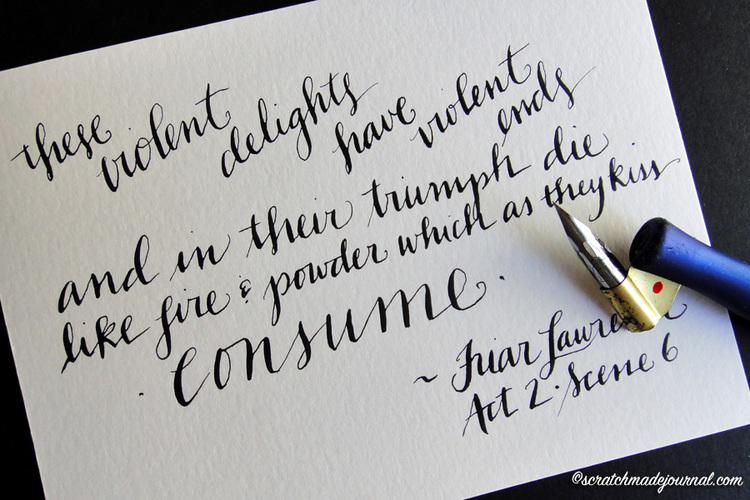 these violent delights have violent ends
and in their triumph die
like fire & powder which as they kiss
consume.
~ Friar Lawrence
Act 2 · Scene 6
©scratchmadejournal.com